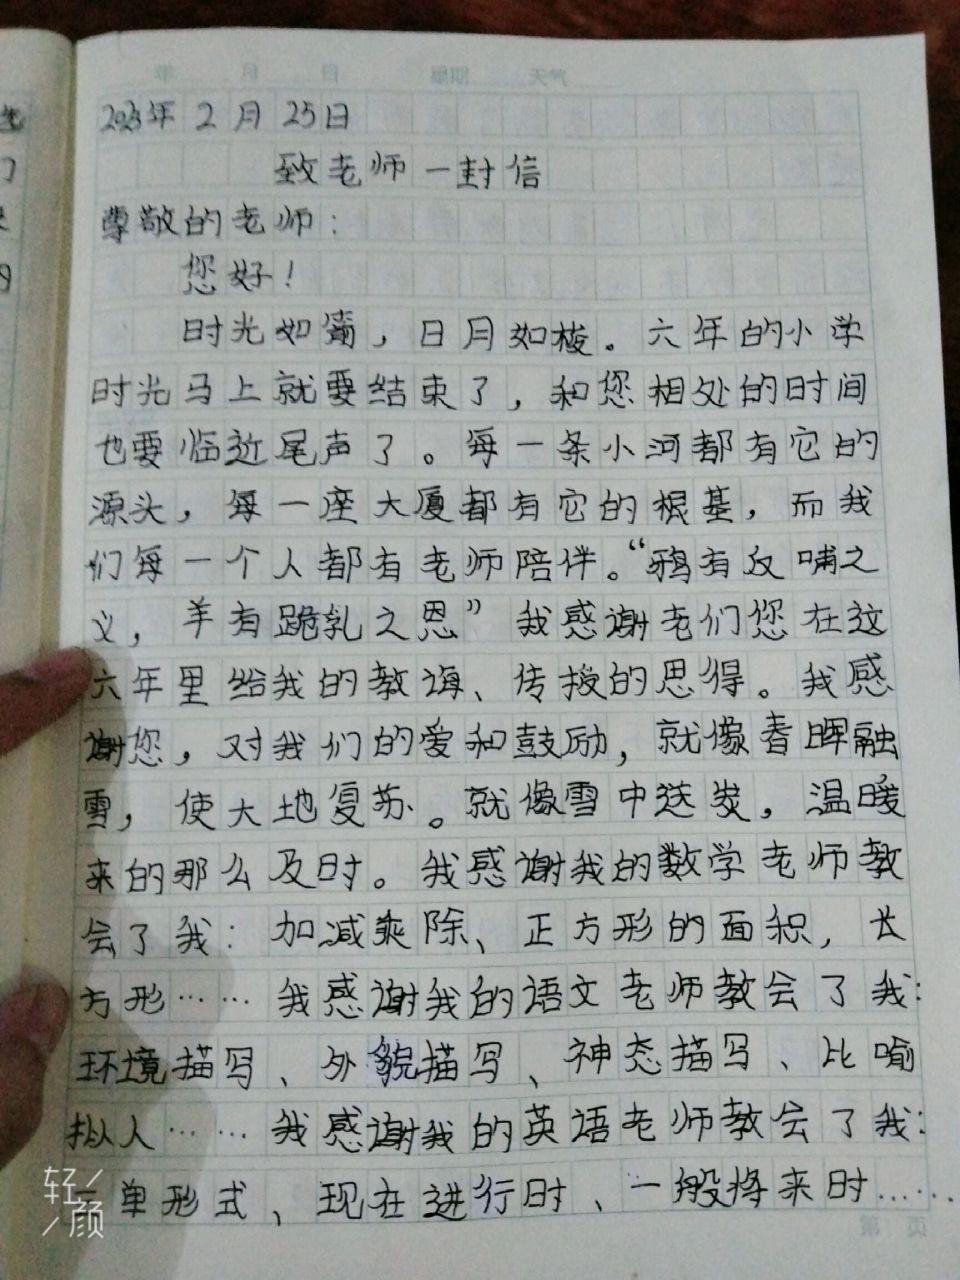 2023年2月25日
致老师一封信
尊敬的老师：
您好！
时光如箭，日月如梭。六年的小学
时光马上就要结束了，和您相处的时间
也要临近尾声了。每一条小河都有它的
源头，每一座大厦都有它的根基，而我
们每一个人都有老师陪伴。“鸦有反哺之
义，羊有跪乳之恩”我感谢老们您在这
六年里给我的教诲、传授的思得。我感
谢您，对我们的爱和鼓励，就像春晖融
雪，使大地复苏。就像雪中送炭，温暖
来的那么及时。我感谢我的数学老师教
会了我：加减乘除、正方形的面积，长
方形……我感谢我的语文老师教会了我：
环境描写、外貌描写、神态描写、比喻
拟人……我感谢我的英语老师教会了我：
单形式、现在进行时、一般将来时……
轻颜